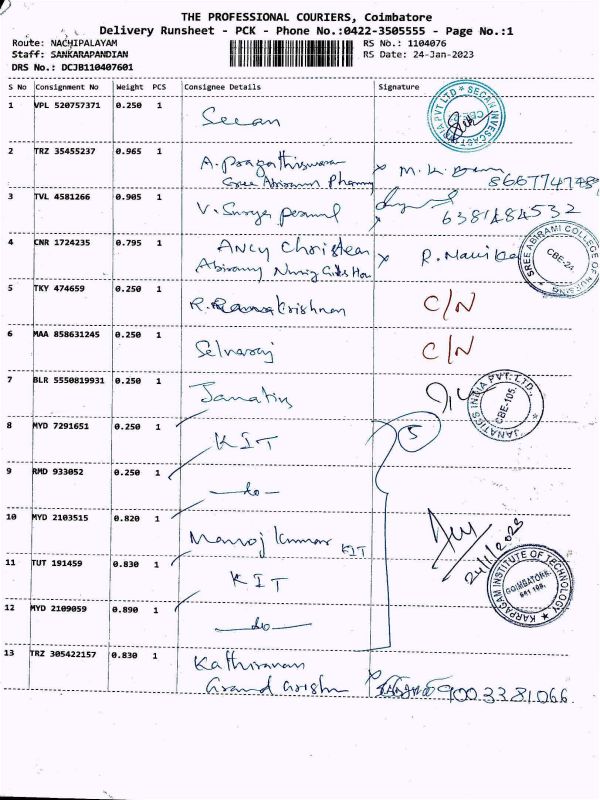 THE PROFESSIONAL COURIERS, Coimbatore
Delivery Runsheet - PCK - Phone No.:0422-3505555 - Page No.:1
Route: NACHIPALAYAM RS No.: 1104076
Staff: SANKARAPANDIAN RS Date: 24-Jan-2023
DRS No.: DCJB110407601
S No Consignment No Weight PCS Consignee Details Signature
1 VPL 520757371 0.250 1 Secan
2 TRZ 35455237 0.965 1
Sree Abirami Pharmacy
3 TVL 4581266 0.905 1 V. Surya perumal 6381484532
4 CNR 1724235 0.795 1 Ancy Christean
SREE ABIRAMI COLLEGE OF NURSING CBE-24
5 TKY 474659 0.250 1 R. Ramakrishnan C/N
6 MAA 858631245 0.250 1 Selvaraj C/N
7 BLR 5550819931 0.250 1 Janatics
JANATICS INDIA PVT. LTD., CBE-105.
8 MYD 7291651 0.250 1 KIT 5
9 RMD 933052 0.250 1 —do—
10 MYD 2103515 0.820 1 Manoj kumar KIT
24/1/2023
11 TUT 191459 0.830 1 KIT
KARPAGAM INSTITUTE OF TECHNOLOGY COIMBATORE. 641 105.
12 MYD 2109059 0.890 1 —do—
13 TRZ 305422157 0.830 1 Kathiravan
9003381066